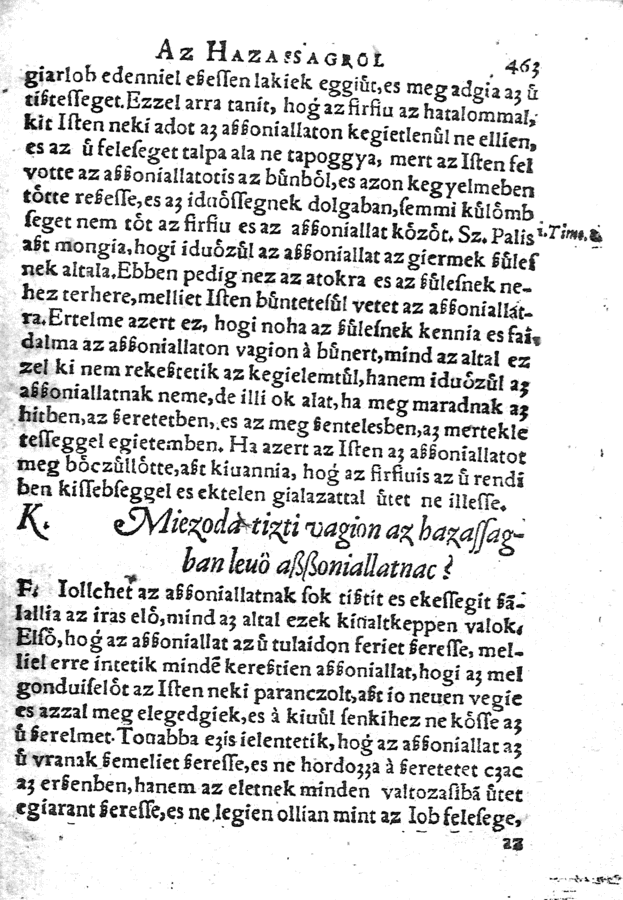 AZ HAZASSAGROL 463
giarlob edenniel eßeſſen lakiek eggiůt,es meg adgia aʒ ů
tißteſſeget.Ezzel arra tanit, hoǵ az firfiu az hatalommal,
kit Iſten neki adot aʒ aßßoniallaton kegietlenůl ne ellien,
es az ů feleſeget talpa ala ne tapoggya, mert az Iſten fel
votte az aßßoniallatotis az bůnból,es azon kegyelmeben
tőtte reßeſſe,es aʒ iduőſſegnek dolgaban,ſemmi kůlőmb
ſeget nem tőt az firfiu es az aßßoniallat kőzőt. Sz. Palis
i.Timo.2.
aßt mongia,hogi iduőzůl az aßßoniallat az giermek ßůleſ
nek altala.Ebben pedig nez az atokra es az ßůleſnek ne-
hez terhere,melliet Iſten bůnteteſůl vetet az aßßoniallát-
ra.Ertelme azert ez, hogi noha az ßůleſnek kennia es fai,
dalma az aßßoniallaton vagion à bůnert,mind az altal ez
zel ki nem rekeßtetik az kegielemtůl,hanem iduőzůl aʒ
aßßoniallatnak neme,de illi ok alat,ha meg maradnak aʒ
hitben,az ßeretetben,.es az meg ßentelesben,aʒ mertekle
teſſeggel egietemben. Ha azert az Iſten aʒ aßßoniallatot
meg bőczůllőtte,aßt kiuannia, hoǵ az firfiuis az ů rendi
ben kiſſebſeggel es ektelen gialazattal ůtet ne illeſſe.
K. Miezoda tizti vagion az hazaſſag-
ban leuő aßßoniallatnac?
F: Iollehet az aßßoniallatnak ſok tißtit es ekeſſegit ßā-
lallia az iras elő,mind aʒ altal ezek kiualtkeppen valok.
Elſő,hoǵ az aßßoniallat az ů tulaidon feriet ßereſſe, mel-
liel erre intetik mindē kereßtien aßßoniallat,hogi aʒ meg
gonduiſelőt az Iſten neki paranczolt,aßt io neuen vegie
es azzal meg elegedgiek,es à kiuůl ſenkihez ne kőſſe aʒ
ů ßerelmet. Touabba eʒis ielentetik,hoǵ az aßßoniallat aʒ
ů vranak ßemeliet ßereſſe,es ne hordoʒʒa à ßeretetet cʒac
aʒ erßenben,hanem az eletnek minden valtozaſibā ůtet
egiarant ßereſſe,es ne legien ollian mint az Iob feleſege,